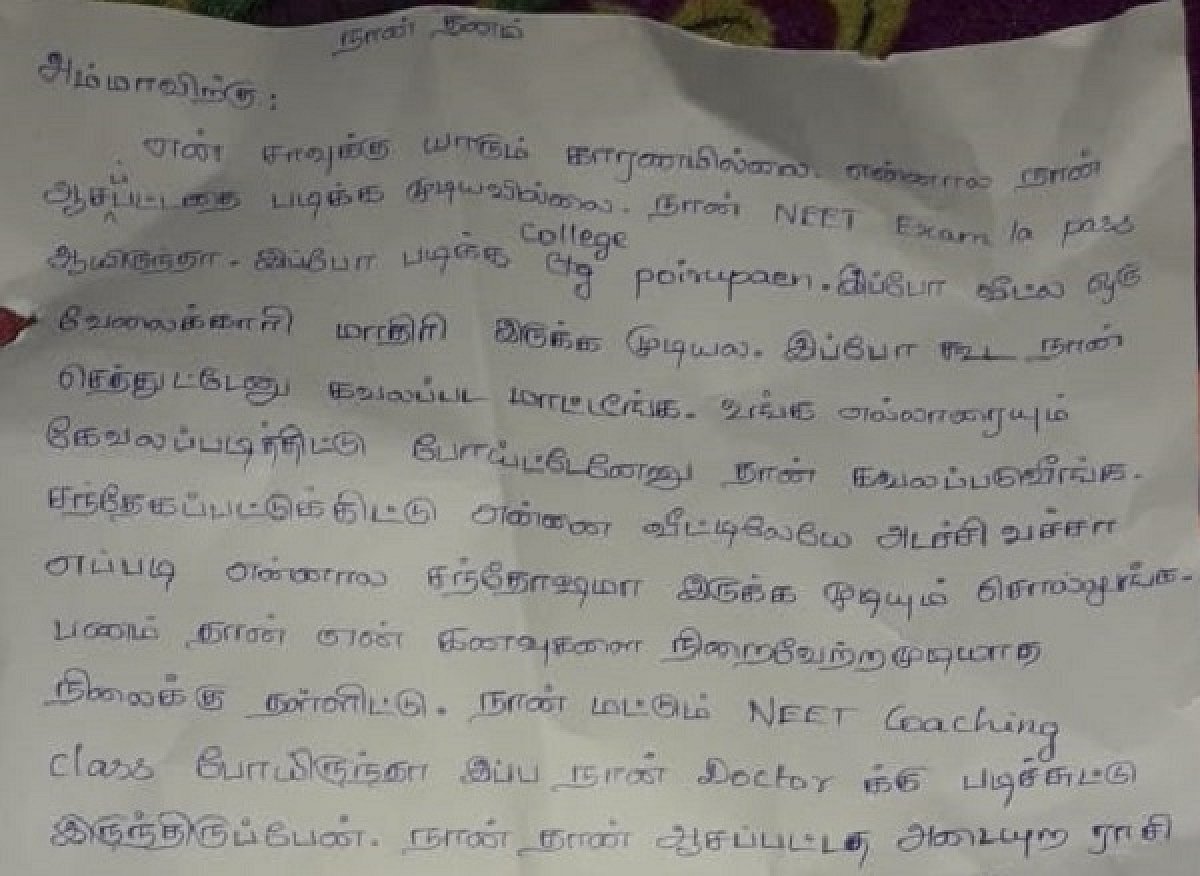 நான் தனம்
அம்மாவிற்கு:
என் சாவுக்கு யாரும் காரணமில்லை. என்னால நான்
ஆசப்பட்டதை படிக்க முடியவில்லை. நான் NEET Exam la pass
ஆயிருந்தா. இப்போ படிக்க College poirupaen. இப்போ வீட்ல ஒரு
வேலைக்காரி மாதிரி இருக்க முடியல. இப்போ கூட நான்
செத்துட்டேனு கவலப்பட மாட்டீங்க. உங்க எல்லாரையும்
கேவலப்படுத்திட்டு போய்ட்டேனேனு நான் கவலப்படுவீங்க.
சந்தேகப்பட்டுக்கிட்டு என்னை வீட்டிலேயே அடச்சி வச்சா
எப்படி என்னால சந்தோஷமா இருக்க முடியும் சொல்லுங்க.
பணம் தான் என் கனவுகளை நிறைவேற்றமுடியாத
நிலைக்கு தள்ளிட்டு. நான் மட்டும் NEET Coaching
Class போயிருந்தா இப்ப நான் Doctor க்கு படிச்சுட்டு
இருந்திருப்பேன். நான் தான் ஆசப்பட்டத அடையுற ராசி